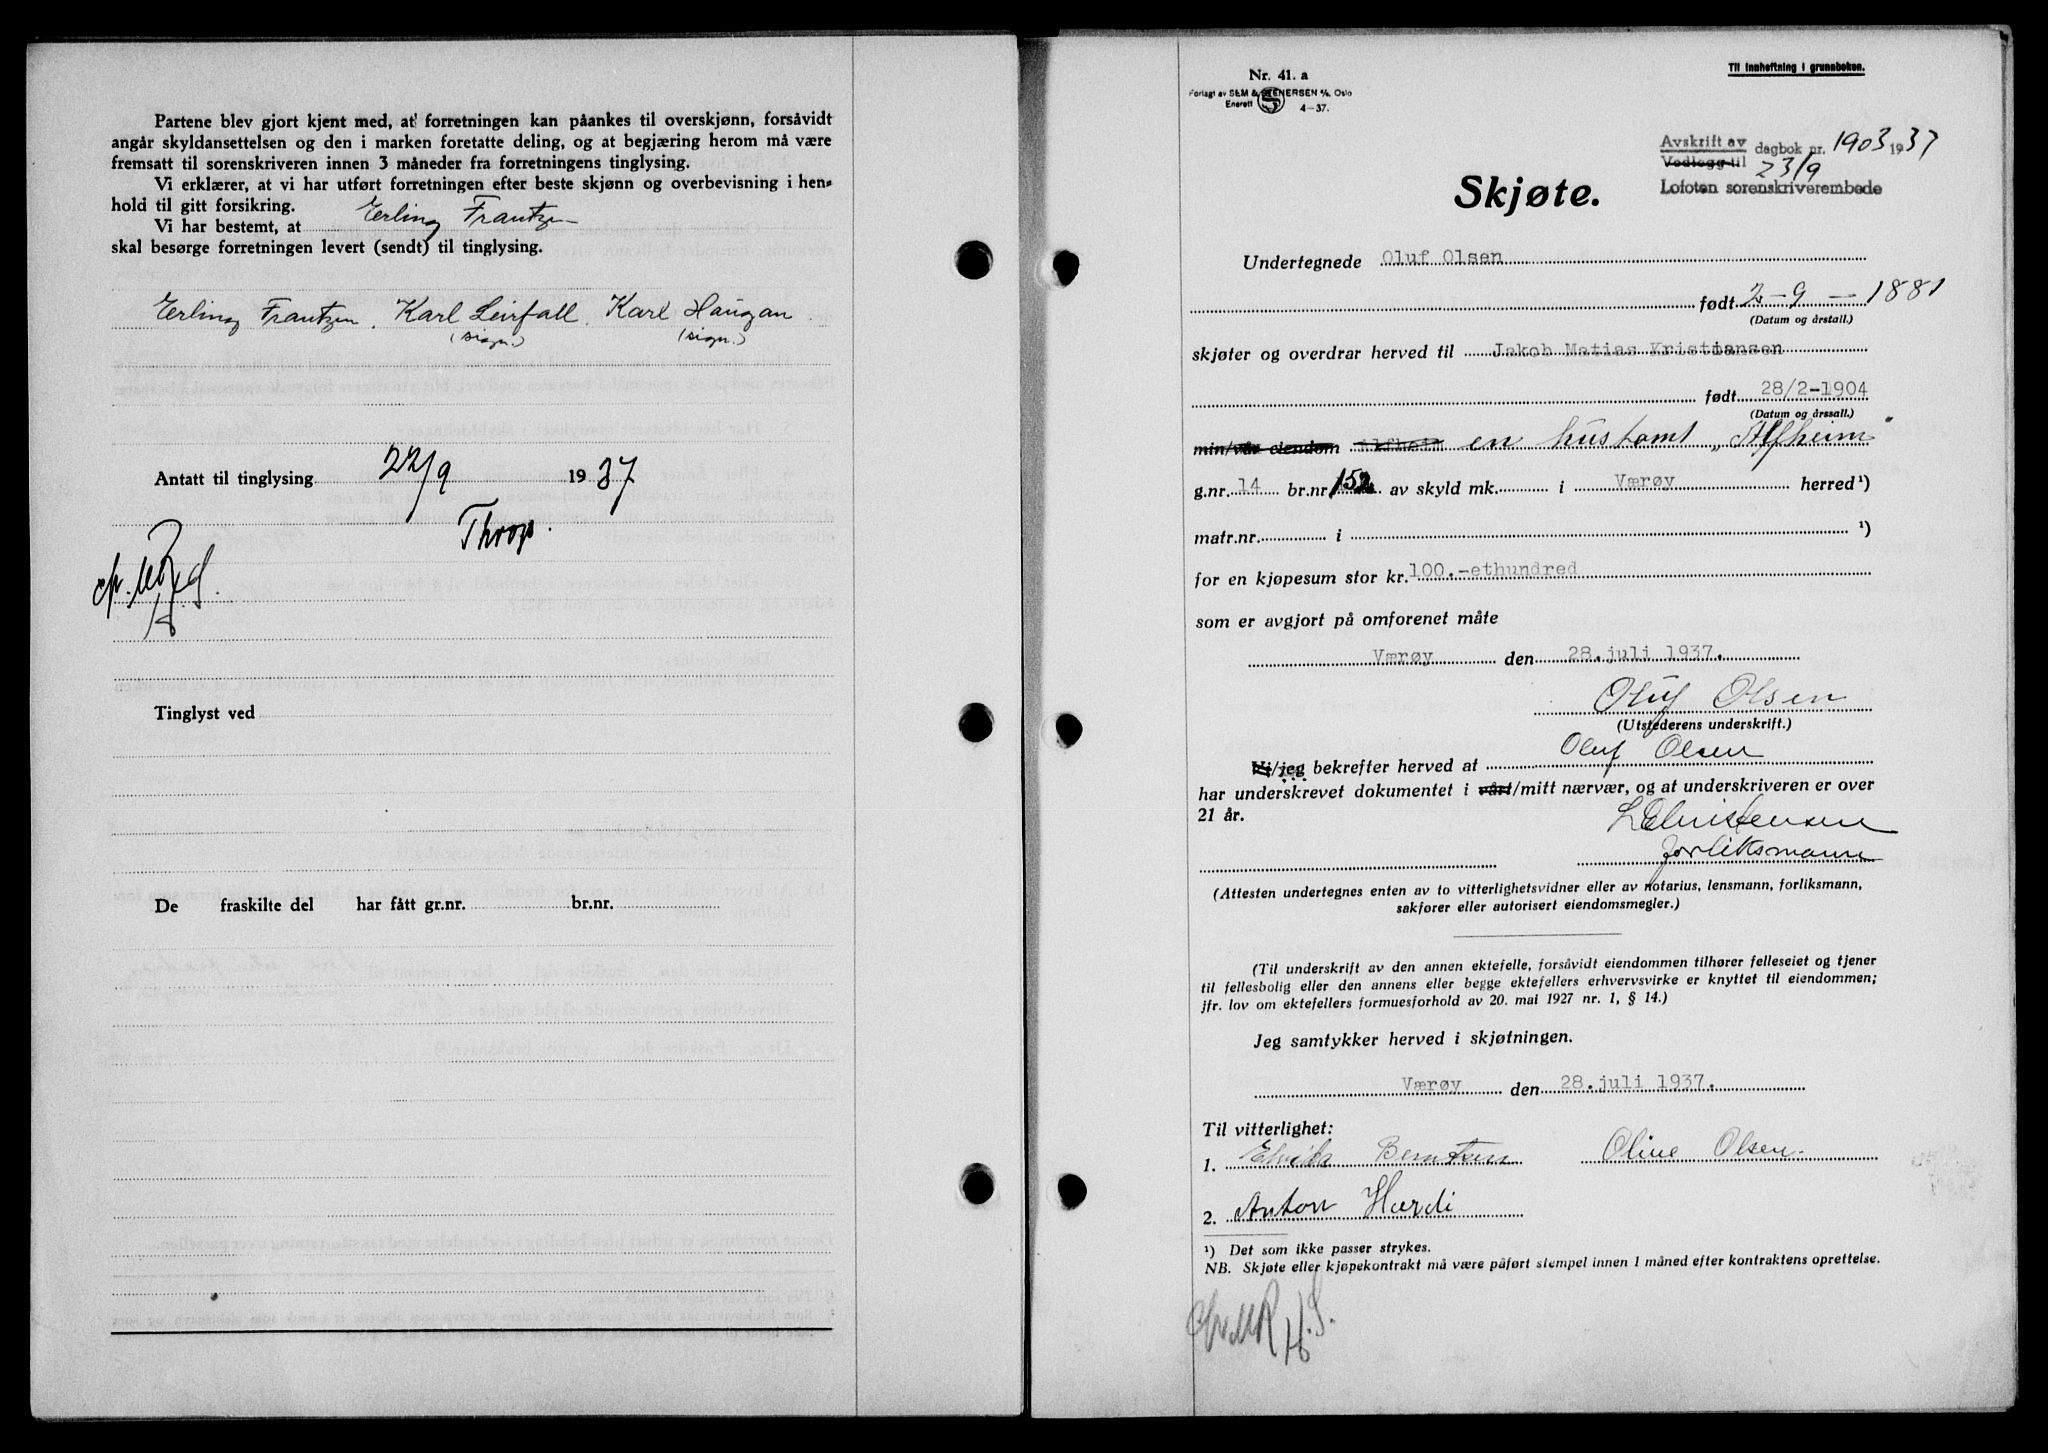 Partene blev gjort kjent med, at forretningen kan påankes til overskjønn, forsåvidt
angår skyldansettelsen og den i marken foretatte deling, og at begjæring herom må være
fremsatt til sorenskriveren innen 3 måneder fra forretningens tinglysing.
Vi erklærer, at vi har utført forretningen efter beste skjønn og overbevisning i hen-
hold til gitt forsikring.
Vi har bestemt, at Erling Frantzen
skal besørge forretningen levert (sendt) til tinglysing.
Erling Frantzen. Karl Leirfall. Karl Haugan
(sign.) (sign.)
Antatt til tinglysing 22/9 1937
Throp.
Tinglyst ved
De fraskilte del har fått gr.nr. br.nr.
Nr. 41. a
Forlagt av SEM & STENERSEN A/S, Oslo
Enerett 4-37.
Til innheftning i grunnboken.
Avskrift av
Vedlegg til dagbok nr. 1903 1937
23/9
Lofoten sorenskriverembede
Skjøte.
Undertegnede Oluf Olsen
født 2-9-1881
(Datum og årstall.)
skjøter og overdrar herved til Jakob Matias Kristiansen
født 28/2-1904
(Datum og årssall.)
min/vår eiendom Alfheim en hustomt „Alfheim"
g.nr. 14 br.nr. 152 av skyld mk. i Værøy herred¹)
matr.nr. i ¹)
for en kjøpesum stor kr. 100.-ethundred
som er avgjort på omforenet måte
Værøy den 28. juli 1937.
Oluf Olsen
(Utstederens underskrift.)
Oluf Olsen
Vi/jeg bekrefter herved at
har underskrevet dokumentet i vårt/mitt nærvær, og at underskriveren er over
21 år.
Christensen
forliksmann
(Attesten undertegnes enten av to vitterlighetsvidner eller av notarius, lensmann, forliksmann,
sakfører eller autorisert eiendomsmegler.)
(Til underskrift av den annen ektefelle, forsåvidt eiendommen tilhører felleseiet og tjener
til fellesbolig eller den annens eller begge ektefellers erhvervsvirke er knyttet til eiendommen;
jfr. lov om ektefellers formuesforhold av 20. mai 1927 nr. 1, § 14.)
Jeg samtykker herved i skjøtningen.
Værøy den 28. juli 1937.
Til vitterlighet:
1. Berntsen Oline Olsen.
2. Anton Hardi
¹) Det som ikke passer strykes.
NB. Skjøte eller kjøpekontrakt må være påført stempel innen 1 måned efter kontraktens oprettelse.